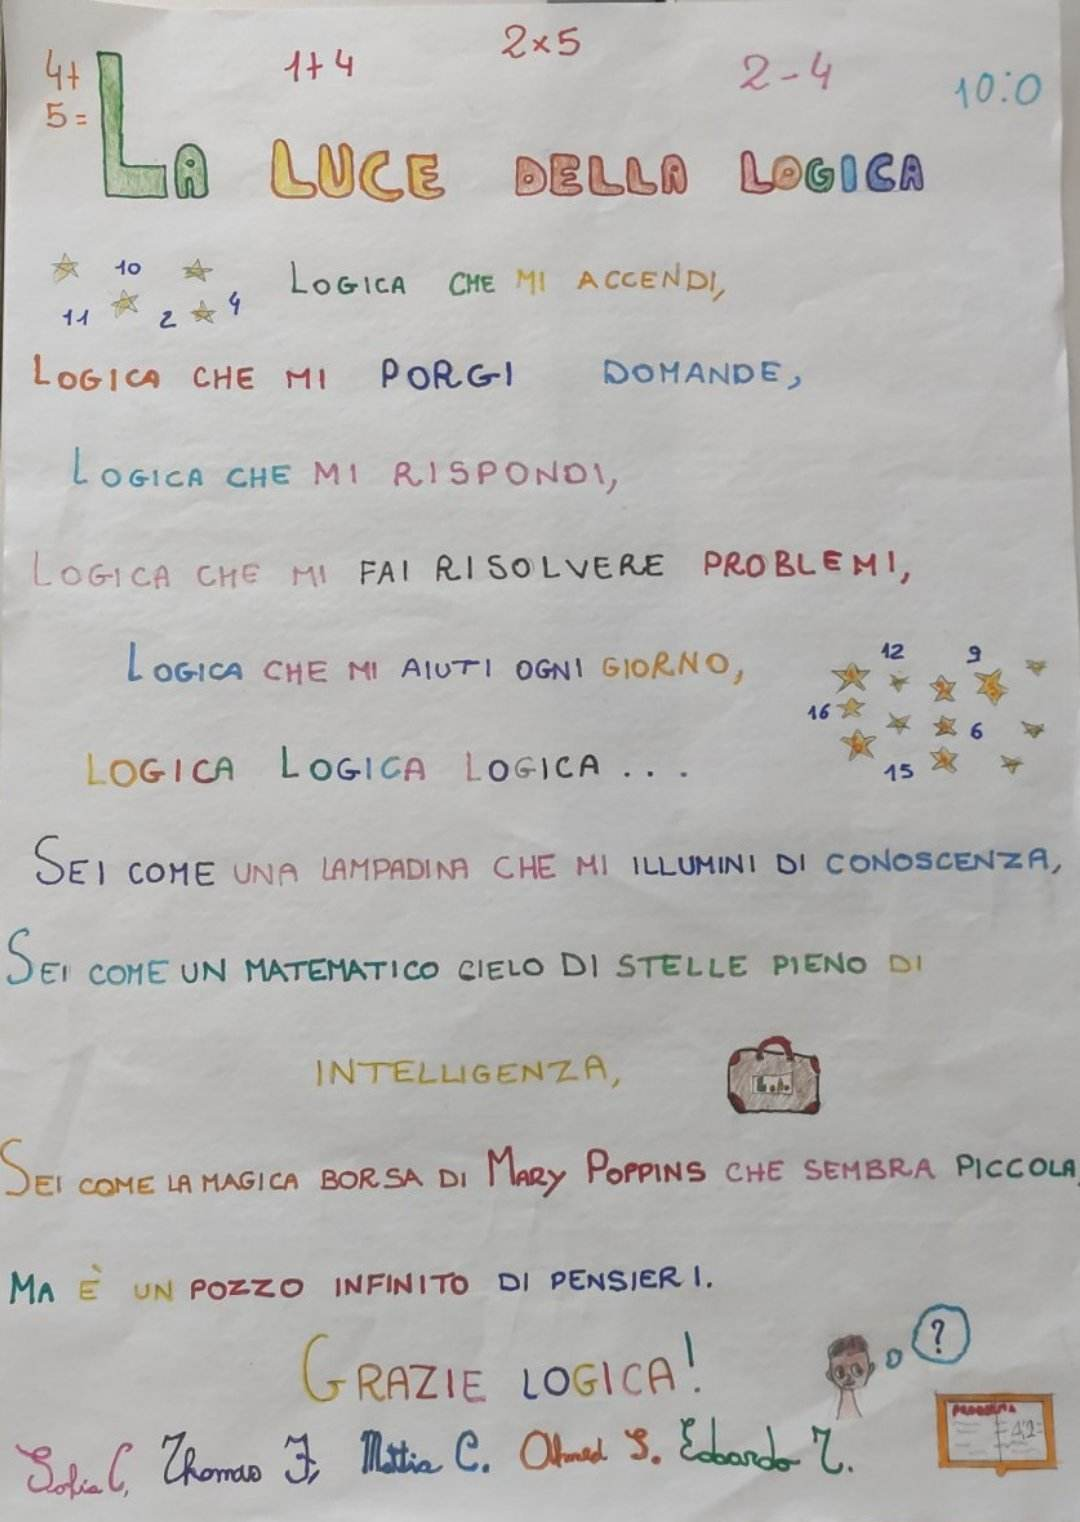 4+
5=
1+4
2×5
2-4
10:0
LA LUCE DELLA LOGICA
10
11
2
4
LOGICA CHE MI ACCENDI,
LOGICA CHE MI PORGI DOMANDE,
LOGICA CHE MI RISPONDI,
LOGICA CHE MI FAI RISOLVERE PROBLEMI,
LOGICA CHE MI AIUTI OGNI GIORNO,
12
9
16
6
15
LOGICA LOGICA LOGICA ...
SEI COME UNA LAMPADINA CHE MI ILLUMINI DI CONOSCENZA,
SEI COME UN MATEMATICO CIELO DI STELLE PIENO DI
INTELLIGENZA,
SEI COME LA MAGICA BORSA DI MARY POPPINS CHE SEMBRA PICCOLA,
MA È UN POZZO INFINITO DI PENSIERI.
?
GRAZIE LOGICA!
PROBLEMA
Sofia C, Thomas F, Mattia C. Ahmed S. Edoardo Z.